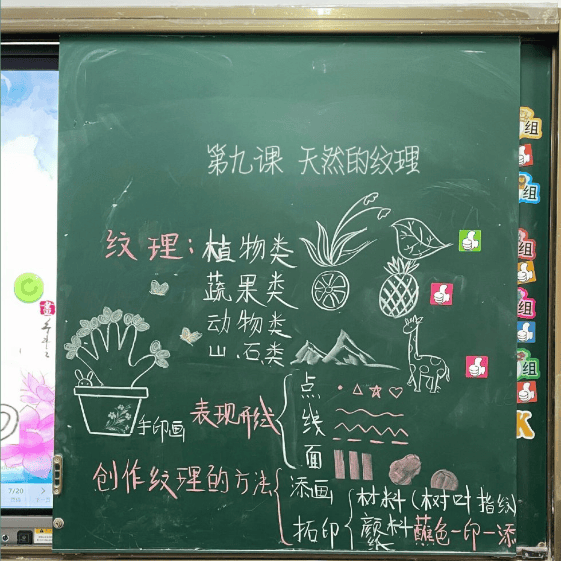 第九课 天然的纹理
纹理：植物类
蔬果类
动物类
山.石类
手印画
表现形线
点
线
面
创作纹理的方法
添画
拓印
材料（树叶 指纹）
颜料 蘸色一印一添
组
组
组
组
组
K
7/20